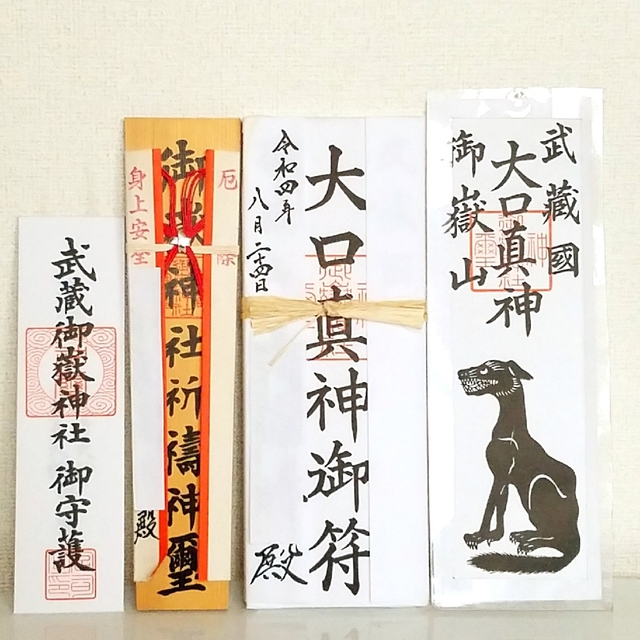 武蔵御嶽神社 御守護
厄除
御嶽神社祈禱神璽
身上安全
殿
大口真神御符
令和四年
八月二十四日
殿
武藏國
大口真神
御嶽山